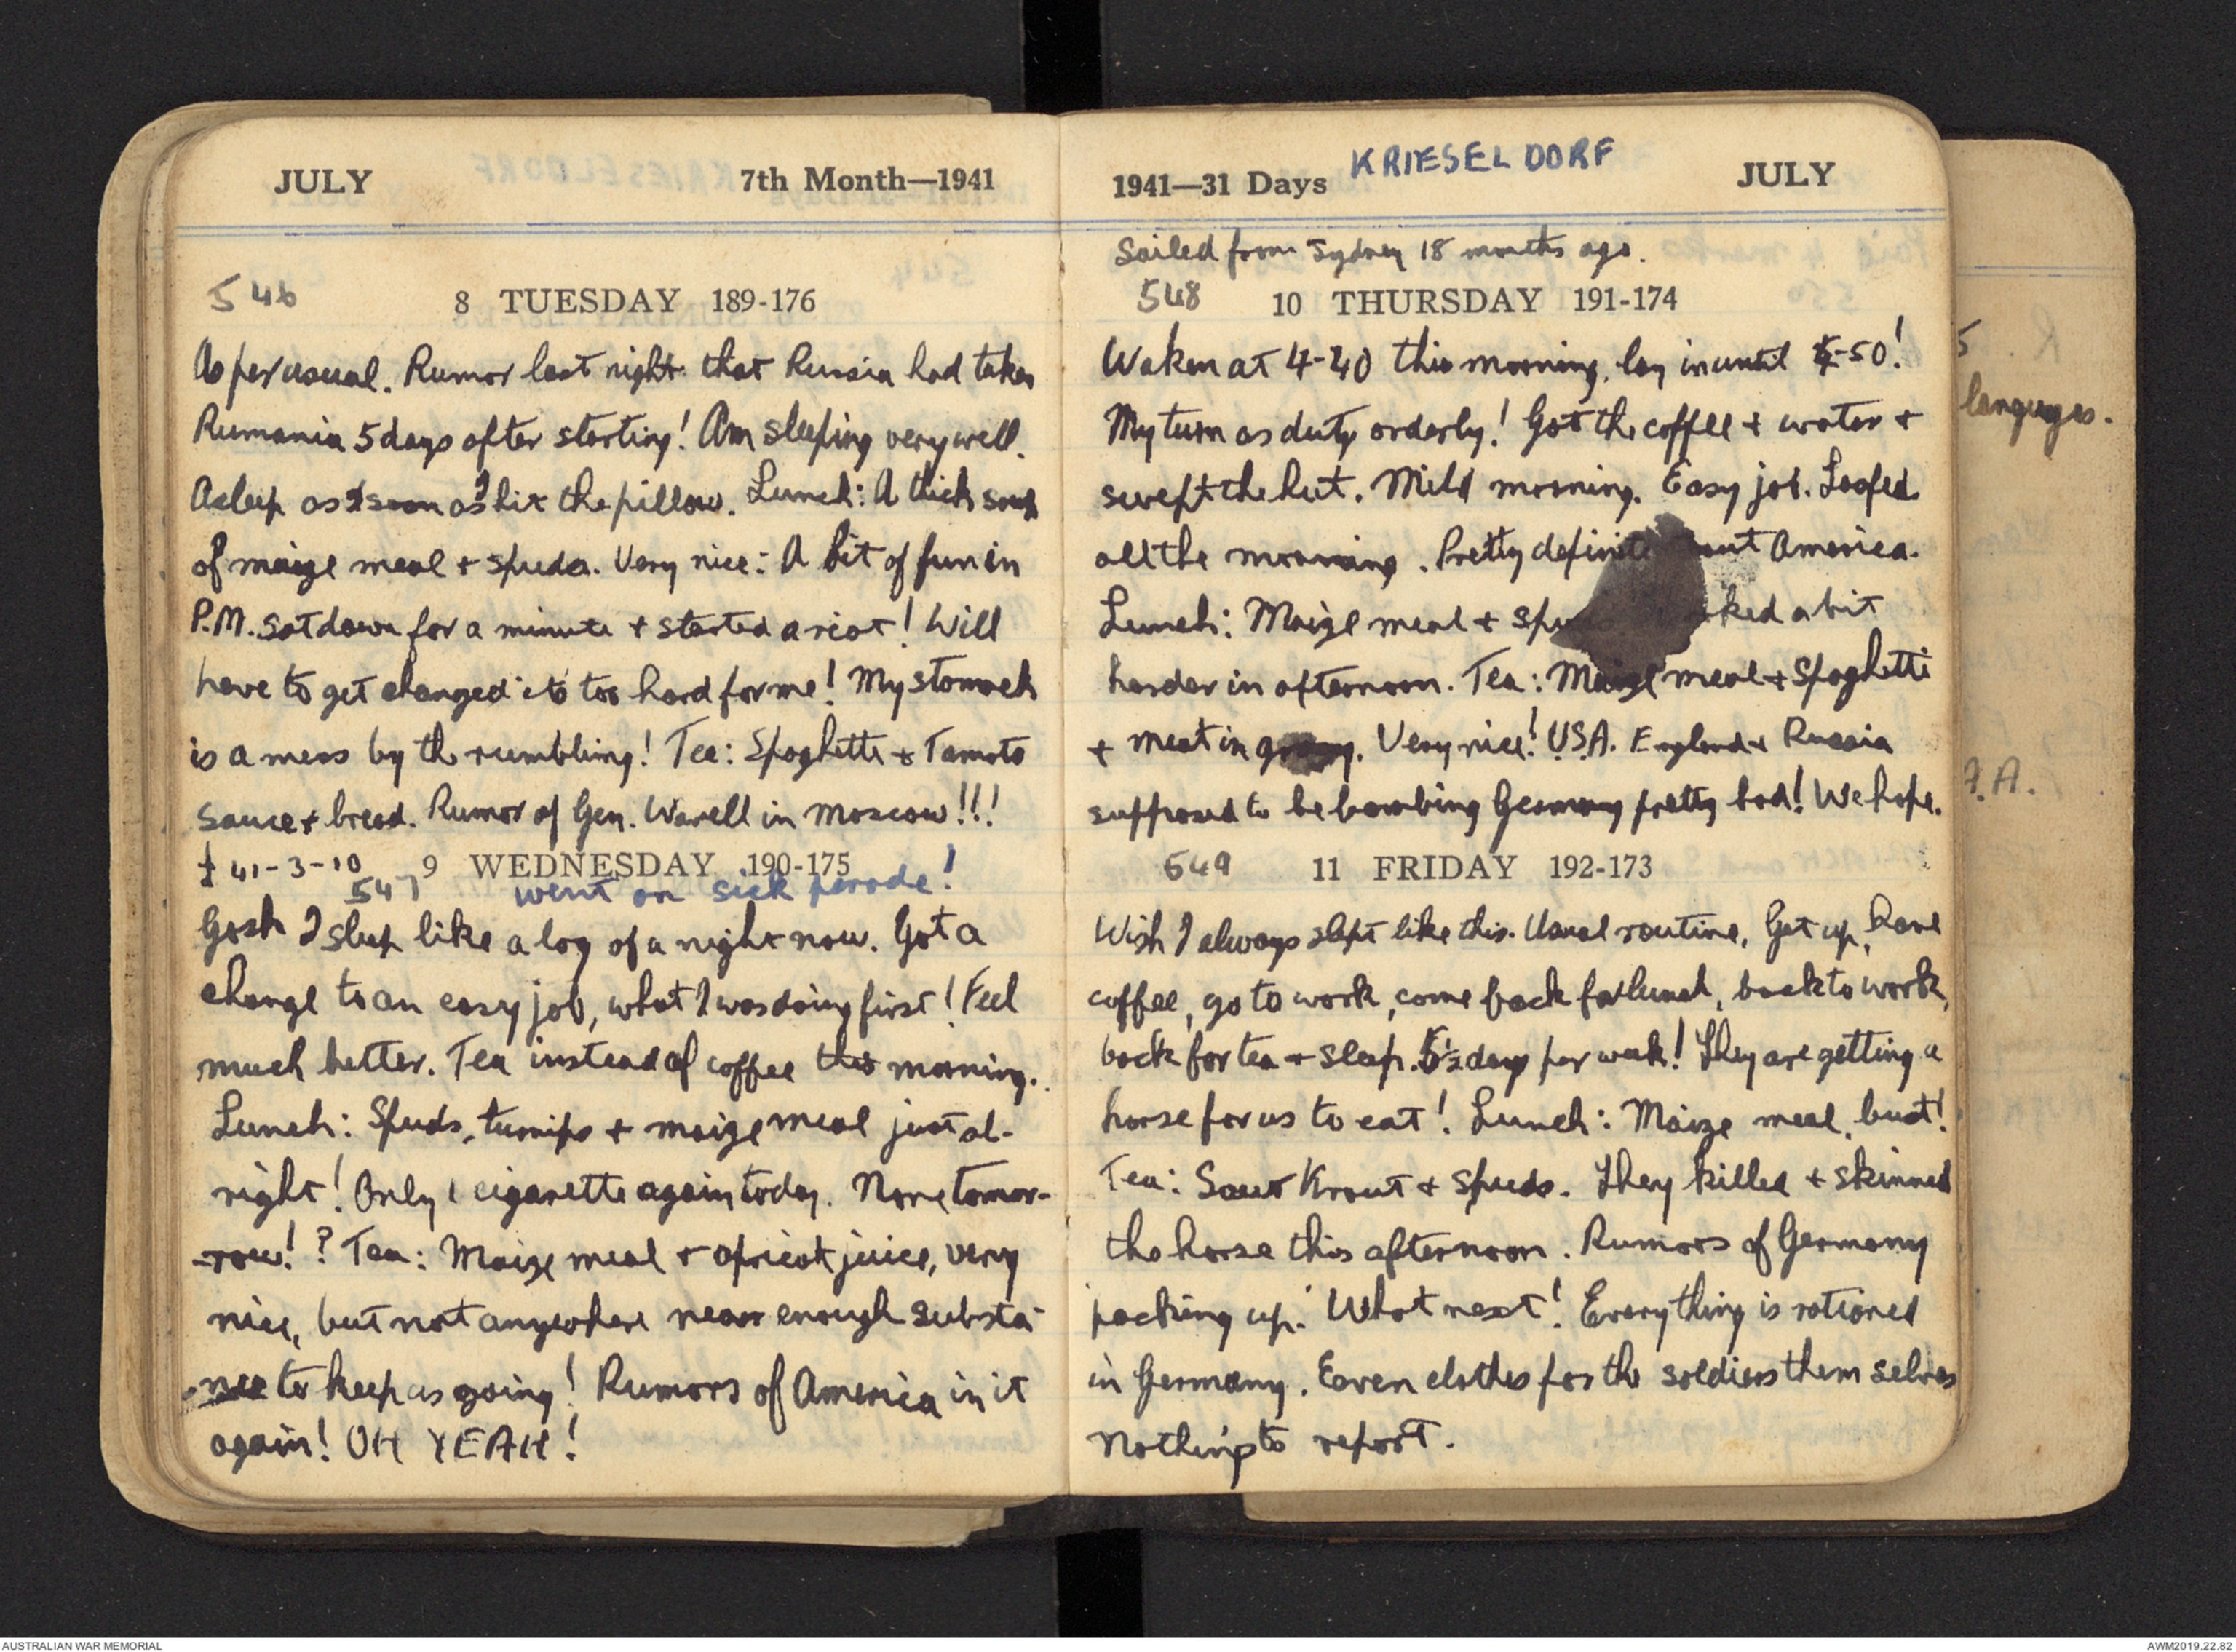 JULY 7th Month—1941
546
8 TUESDAY 189-176
As per usual. Rumor last night that Russia had taken
Rumania 5 days after starting! Am sleeping very well.
Asleep as soon as I hit the pillow. Lunch: A thick soup
of maize meal + spuds. Very nice: A bit of fun in
P.M. sat down for a minute + started a riot! Will
have to get changed its too hard for me! My stomach
is a mess by the rumbling! Tea: Spaghetti + Tamato
sauce + bread. Rumor of Gen. Wavell in Moscow!!!
£ 41-3-10
547 9 WEDNESDAY 190-175
went on sick parade!
Gosh I sleep like a log of a night now. Got a
change to an easy job, what I was doing first! Feel
much better. Tea instead of coffee this morning.
Lunch: Spuds, turnips + maize meal just al-
right! Only 1 cigarette again today. None tomor-
-row! ? Tea: Maize meal + apricot juice, very
nice, but not anywhere near enough substa-
-nce to keep us going! Rumors of America in it
again! OH YEAH!
1941—31 Days KRIESELDORF JULY
Sailed from Sydney 18 months ago.
548 10 THURSDAY 191-174
Waken at 4-40 this morning, lay in until 5-50!
My turn as duty orderly! Got the coffee + water +
swept the hut. Mild morning. Easy job. Loafed
all the morning. Pretty definite America.
Lunch: Maize meal + a bit
harder in afternoon. Tea: Maize meal + Spaghetti
+ meat in gravy. Very nice! U.S.A. England + Russia
supposed to be bombing Germany pretty bad! We hope.
549 11 FRIDAY 192-173
Wish I always slept like this. Usual routine, Get up, have
coffee, go to work, come back for lunch, back to work,
back for tea + sleep. 5½ days per week! They are getting a
horse for us to eat! Lunch: Maize meal, bust!
Tea: Sour Krout + spuds. They killed + skinned
the horse this afternoon. Rumors of Germany
packing up! What next! Everything is rationed
in Germany. Even clothes for the soldiers them selves
Nothing to report.
5
languages.
F.A.
AUSTRALIAN WAR MEMORIAL
AWM2019.22.82